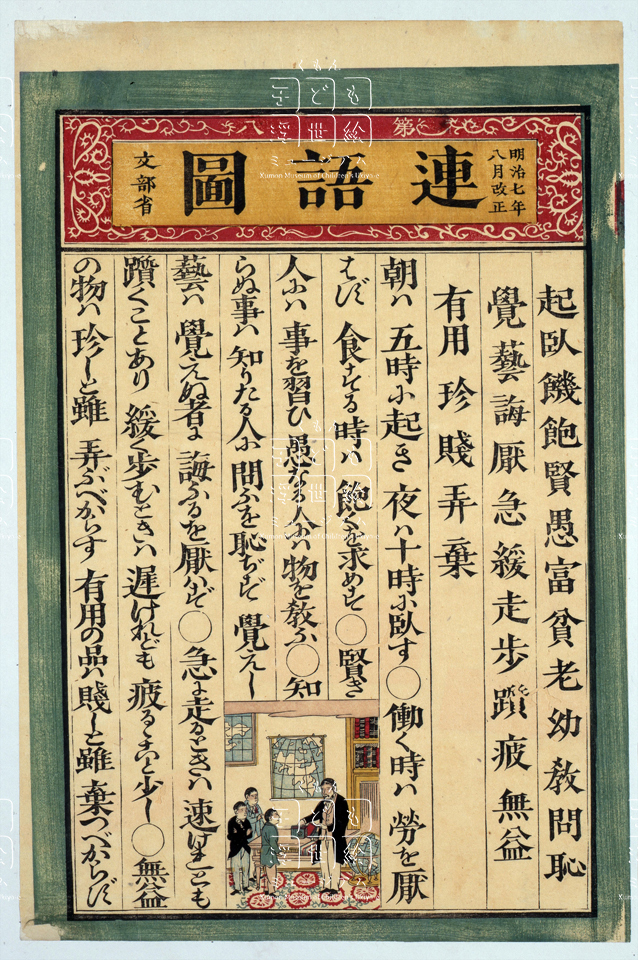 第八
明治七年
八月改正
連語圖
文部省
起臥饑飽賢愚富貧老幼教問恥
覺藝誨厭急緩走歩躓疲無益
有用珍賤弄棄
朝ハ 五時に起き 夜ハ十時に臥す 〇 働く時ハ 勞を厭
はず 食する時ハ 飽くを求めず 〇 賢き
人にハ 事を習ひ 愚なる人にハ 物を教ふ 〇 知
らぬ事ハ 知りたる人に 問ふを恥ぢず 覺えし
藝ハ 覺えぬ者に 誨ふるを厭はず 〇 急に走るときハ 速けれども
躓くことあり 緩く歩むときハ 遲けれども 疲るゝこと少し 〇 無益
の物ハ 珍しと雖 弄ぶべからず 有用の品ハ 賤しと雖 棄つべからず
くもん
子ども
浮世絵
ミュージアム
Kumon Museum of Children's Ukiyo-e